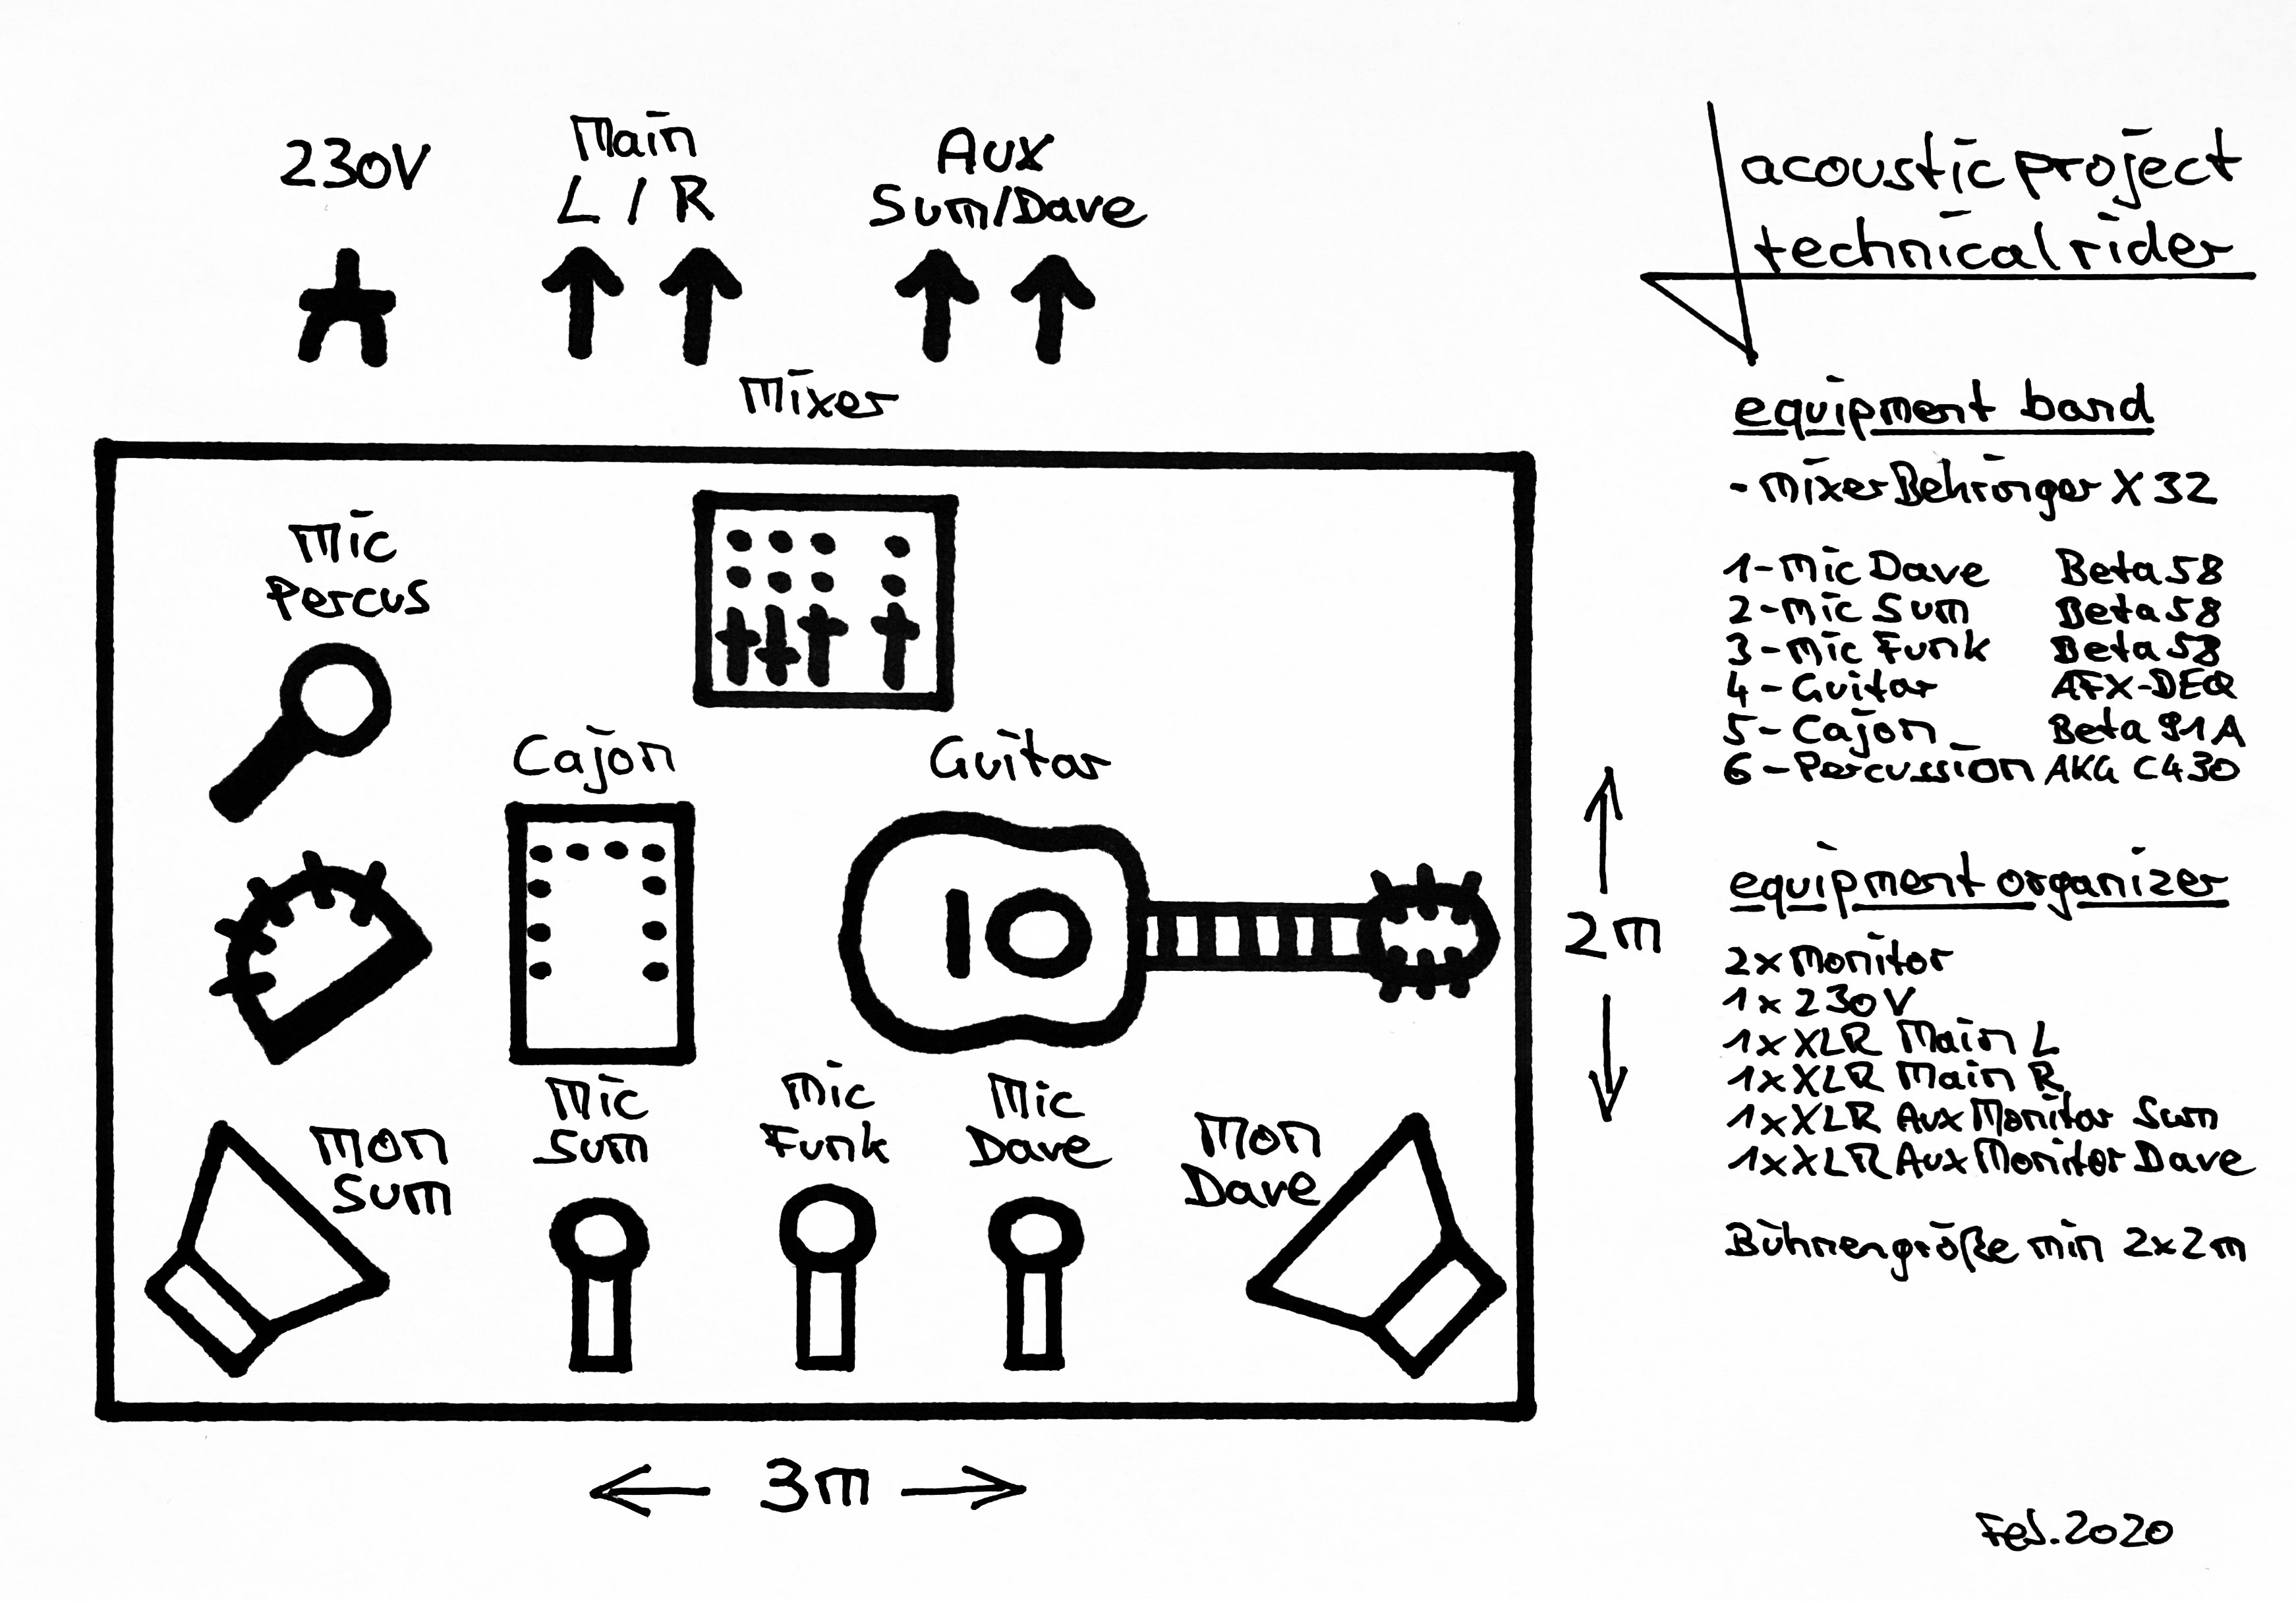 230V
Main
L/R
Aux
Sum/Dave
Mixer
Mic
Percus
Cajon
Guitar
Mic
Sum
Mic
Funk
Mic
Dave
Mon
Sum
Mon
Dave
2m
3m
acoustic project
technical rider
equipment band
- Mixer Behringer X32
1-Mic Dave Beta 58
2-Mic Sum Beta 58
3-Mic Funk Beta 58
4-Guitar AFX-DEQ
5-Cajon Beta 91A
6-Percussion AKG C430
equipment organizer
2x Monitor
1x 230V
1x XLR Main L
1x XLR Main R
1x XLR Aux Monitor Sum
1x XLR Aux Monitor Dave
Bühnengröße min 2x2m
Feb. 2020